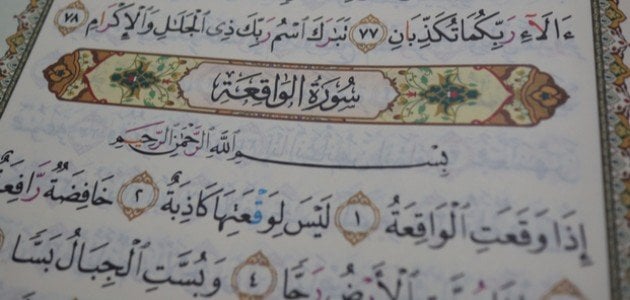 ءَالَآءِ رَبِّكُمَا تُكَذِّبَانِ ٧٧ تَبَٰرَكَ ٱسْمُ رَبِّكَ ذِى ٱلْجَلَٰلِ وَٱلْإِكْرَامِ ٧٨
سُورَةُ الوَاقِعَة
بِسْمِ ٱللَّهِ ٱلرَّحْمَٰنِ ٱلرَّحِيمِ
إِذَا وَقَعَتِ ٱلْوَاقِعَةُ ١ لَيْسَ لِوَقْعَتِهَا كَاذِبَةٌ ٢ خَافِضَةٌ رَّافِعَةٌ
ٱلْأَرْضُ رَجًّا ٤ وَبُسَّتِ ٱلْجِبَالُ بَسًّا